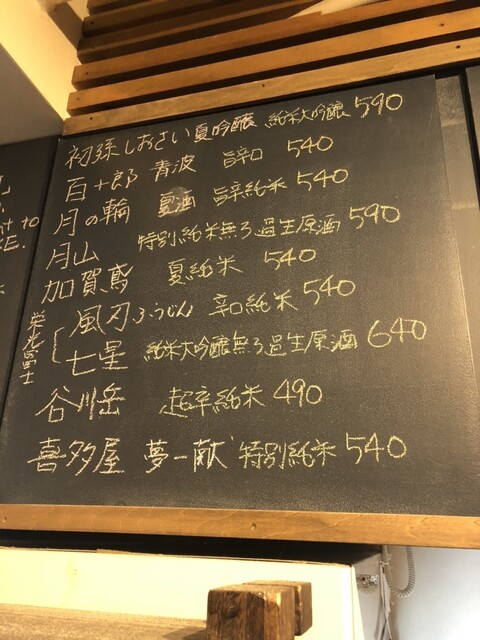 初孫 しおさい 夏吟醸 純米大吟醸 590
百十郎 青波 旨辛口 540
月の輪 夏酒 旨辛純米 540
月山 特別純米無ろ過生原酒 590
加賀鳶 夏純米 540
風刃 ふうじん 辛口純米 540
七星 純米大吟醸無ろ過生原酒 640
谷川岳 超辛純米 490
喜多屋 夢一献 特別純米 540
栄光冨士